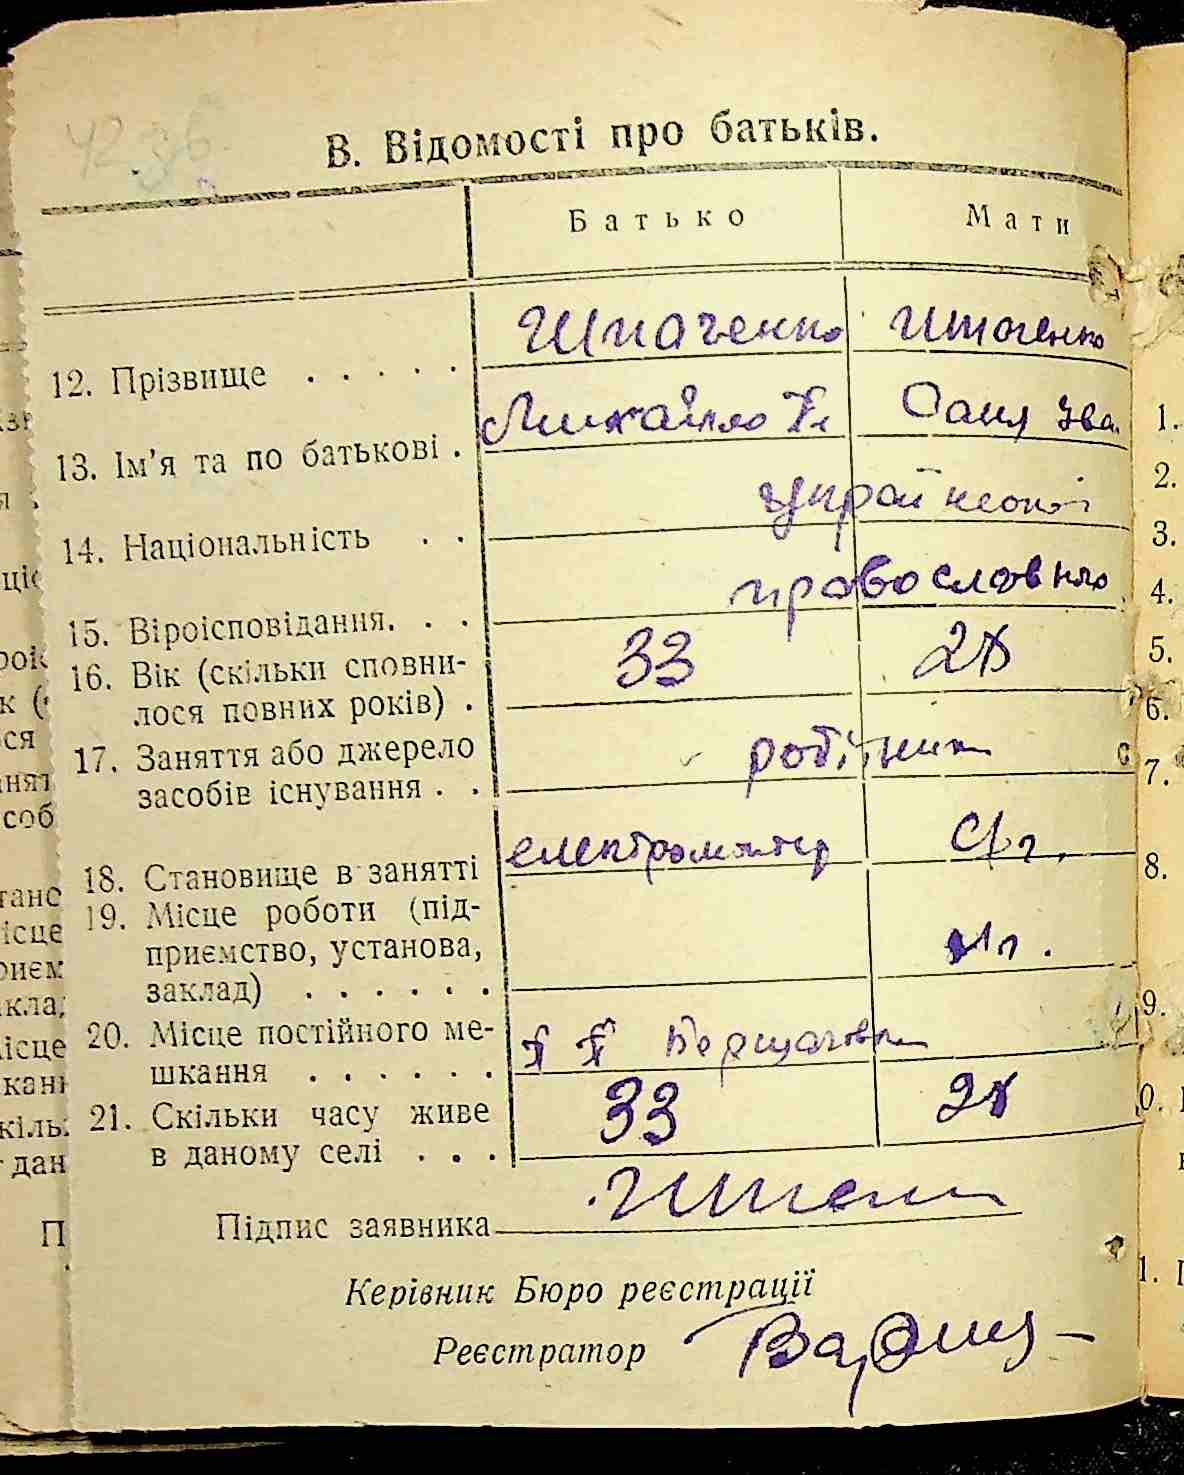 42.36
В. Відомості про батьків.
Батько Мати
12. Прізвище . . . . . Шпаченко Шпаченко
13. Ім’я та по батькові . Михайло Ів. Саня Іва.
14. Національність . . україньскої
15. Віроісповідання. . . православна
16. Вік (скільки сповни- 33 28
лося повних років) .
17. Заняття або джерело робітник
засобів існування . .
18. Становище в занятті електромонтер с/г.
19. Місце роботи (під-
приємство, установа,
заклад) . . . . . .
20. Місце постійного ме-
шкання . . . . . .
21. Скільки часу живе 33 28
в даному селі . . .
Підпис заявника
Керівник Бюро реєстрації
Реєстратор
1.
2.
3.
4.
5.
6.
7.
8.
9.